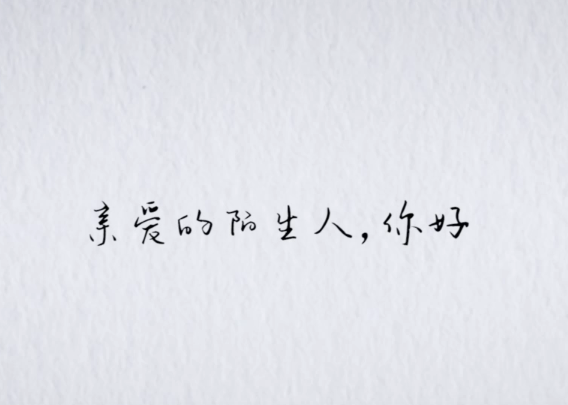 亲爱的陌生人,你好